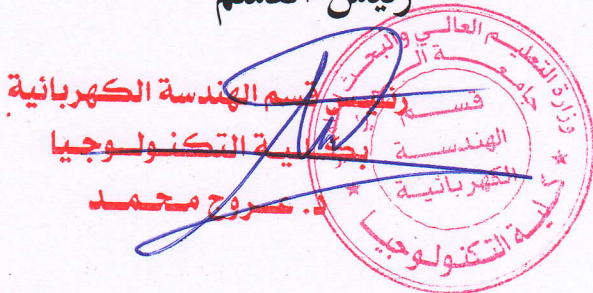 رئيس القسم
رئيس قسم الهندسة الكهربائية
بكلية التكنولوجيا
د. محمد
وزارة التعليم العالي والبحث
جامعة
قسم
الهندسة
الكهربائية
كلية التكنولوجيا